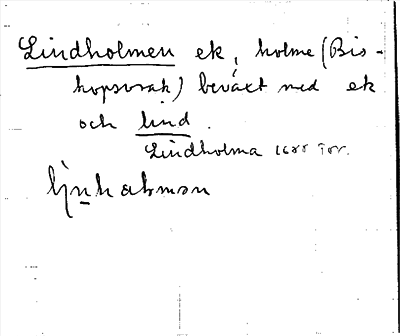 Lindholmen ek, holme (Bis-
kopsvrak) beväxt med ek
och lind.
Lindholma 1688